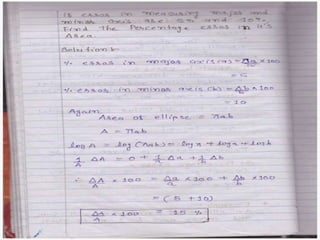 If error in measuring major and
minor axis are 5% and 10%.
Find the Percentage error in it's
Area.
Solution:-
% error in major axis (a) = Δa/a × 100
= 5
% error in minor axis (b) = Δb/b × 100
= 10
Again
Area of ellipse = πab
A = πab
log A = log (πab) = log π + log a + log b
1/A ΔA = 0 + 1/a Δa + 1/b Δb
∴ ΔA/A × 100 = Δa/a × 100 + Δb/b × 100
= (5 + 10)
ΔA/A × 100 = 15 %